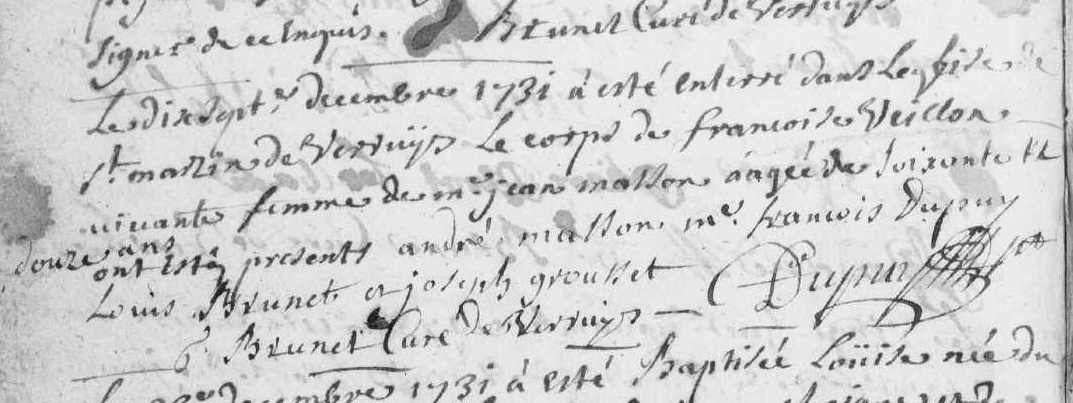 signer de ce Enquis. Brunet Curé de Verruÿs
Le dix sept.e decembre 1731 à esté Enterré dans Leglise de
st. martin de Verruÿs Le corps de francoise Veillon
vivante femme de me. jean masson aagée de soixante et
douze ans
ont estéz presents andré masson me. francois Dupuy
Louis Brunet & joseph grousset Dupuy
Brunet Curé de Verruÿs
decembre 1731 à esté Baptisée Loüise née du